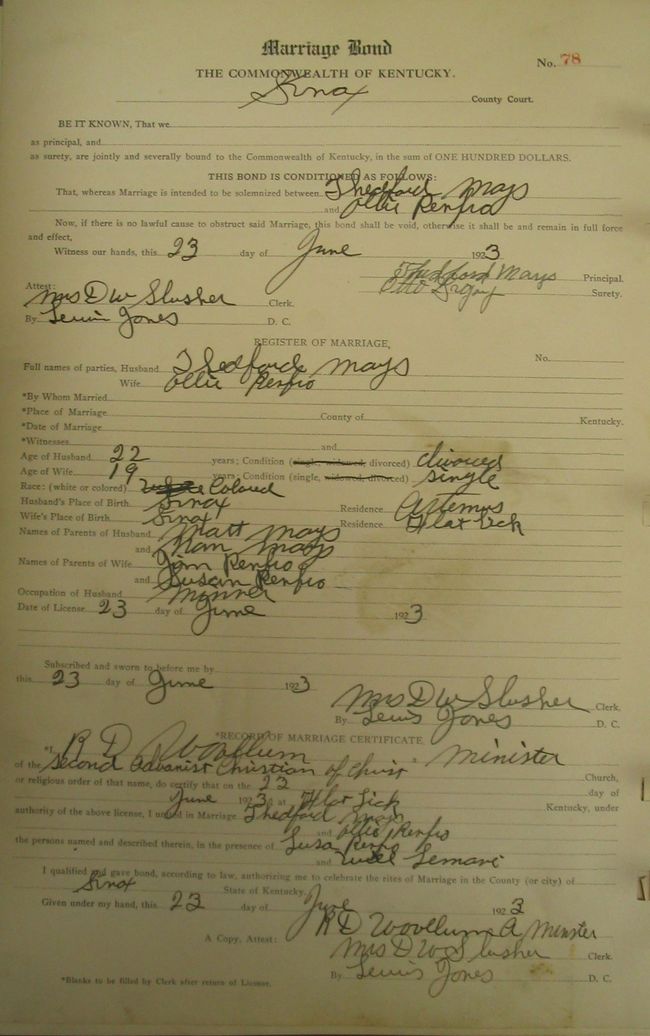 Marriage Bond
No. 78
THE COMMONWEALTH OF KENTUCKY.
Knox County Court.
BE IT KNOWN, That we
as principal, and
as surety, are jointly and severally bound to the Commonwealth of Kentucky, in the sum of ONE HUNDRED DOLLARS.
THIS BOND IS CONDITIONED AS FOLLOWS:
That, whereas Marriage is intended to be solemnized between Thedford Mays
and Ollie Renfro
Now, if there is no lawful cause to obstruct said Marriage, this bond shall be void, otherwise it shall be and remain in full force
and effect,
Witness our hands, this 23 day of June 1923
Thedford Mays Principal.
Surety.
Attest:
Mrs D W Slusher Clerk.
By Lewis Jones D. C.
REGISTER OF MARRIAGE,
No.
Full names of parties, Husband Thedford Mays
Wife Ollie Renfro
*By Whom Married
*Place of Marriage County of Kentucky.
*Date of Marriage
*Witnesses and
Age of Husband 22 years; Condition (single, widowed, divorced) divorced
Age of Wife 19 years; Condition (single, widowed, divorced) single
Race: (white or colored) Colored
Husband's Place of Birth Knox Residence Artemus
Wife's Place of Birth Knox Residence Flat Lick
Names of Parents of Husband Matt Mays
and Nan Mays
Names of Parents of Wife Tom Renfro
and Susan Renfro
Occupation of Husband Minner
Date of License 23 day of June 1923
Subscribed and sworn to before me by
this 23 day of June 1923
Mrs D W Slusher Clerk.
By Lewis Jones D. C.
*RECORD OF MARRIAGE CERTIFICATE.
*I, R D Woollum Minister
of the Second Advanist Christian of Christ Church,
or religious order of that name, do certify that on the 23 day of
June 1923, at Flat Lick Kentucky, under
authority of the above license, I united in Marriage Thedford Mays
and Ollie Renfro
the persons named and described therein, in the presence of Susa Renfro
and
I qualified and gave bond, according to law, authorizing me to celebrate the rites of Marriage in the County (or city) of
Knox State of Kentucky.
Given under my hand, this 23 day of June 1923
R D Woollum A Minster
A Copy, Attest: Mrs D W Slusher Clerk.
By Lewis Jones D. C.
*Blanks to be filled by Clerk after return of License.